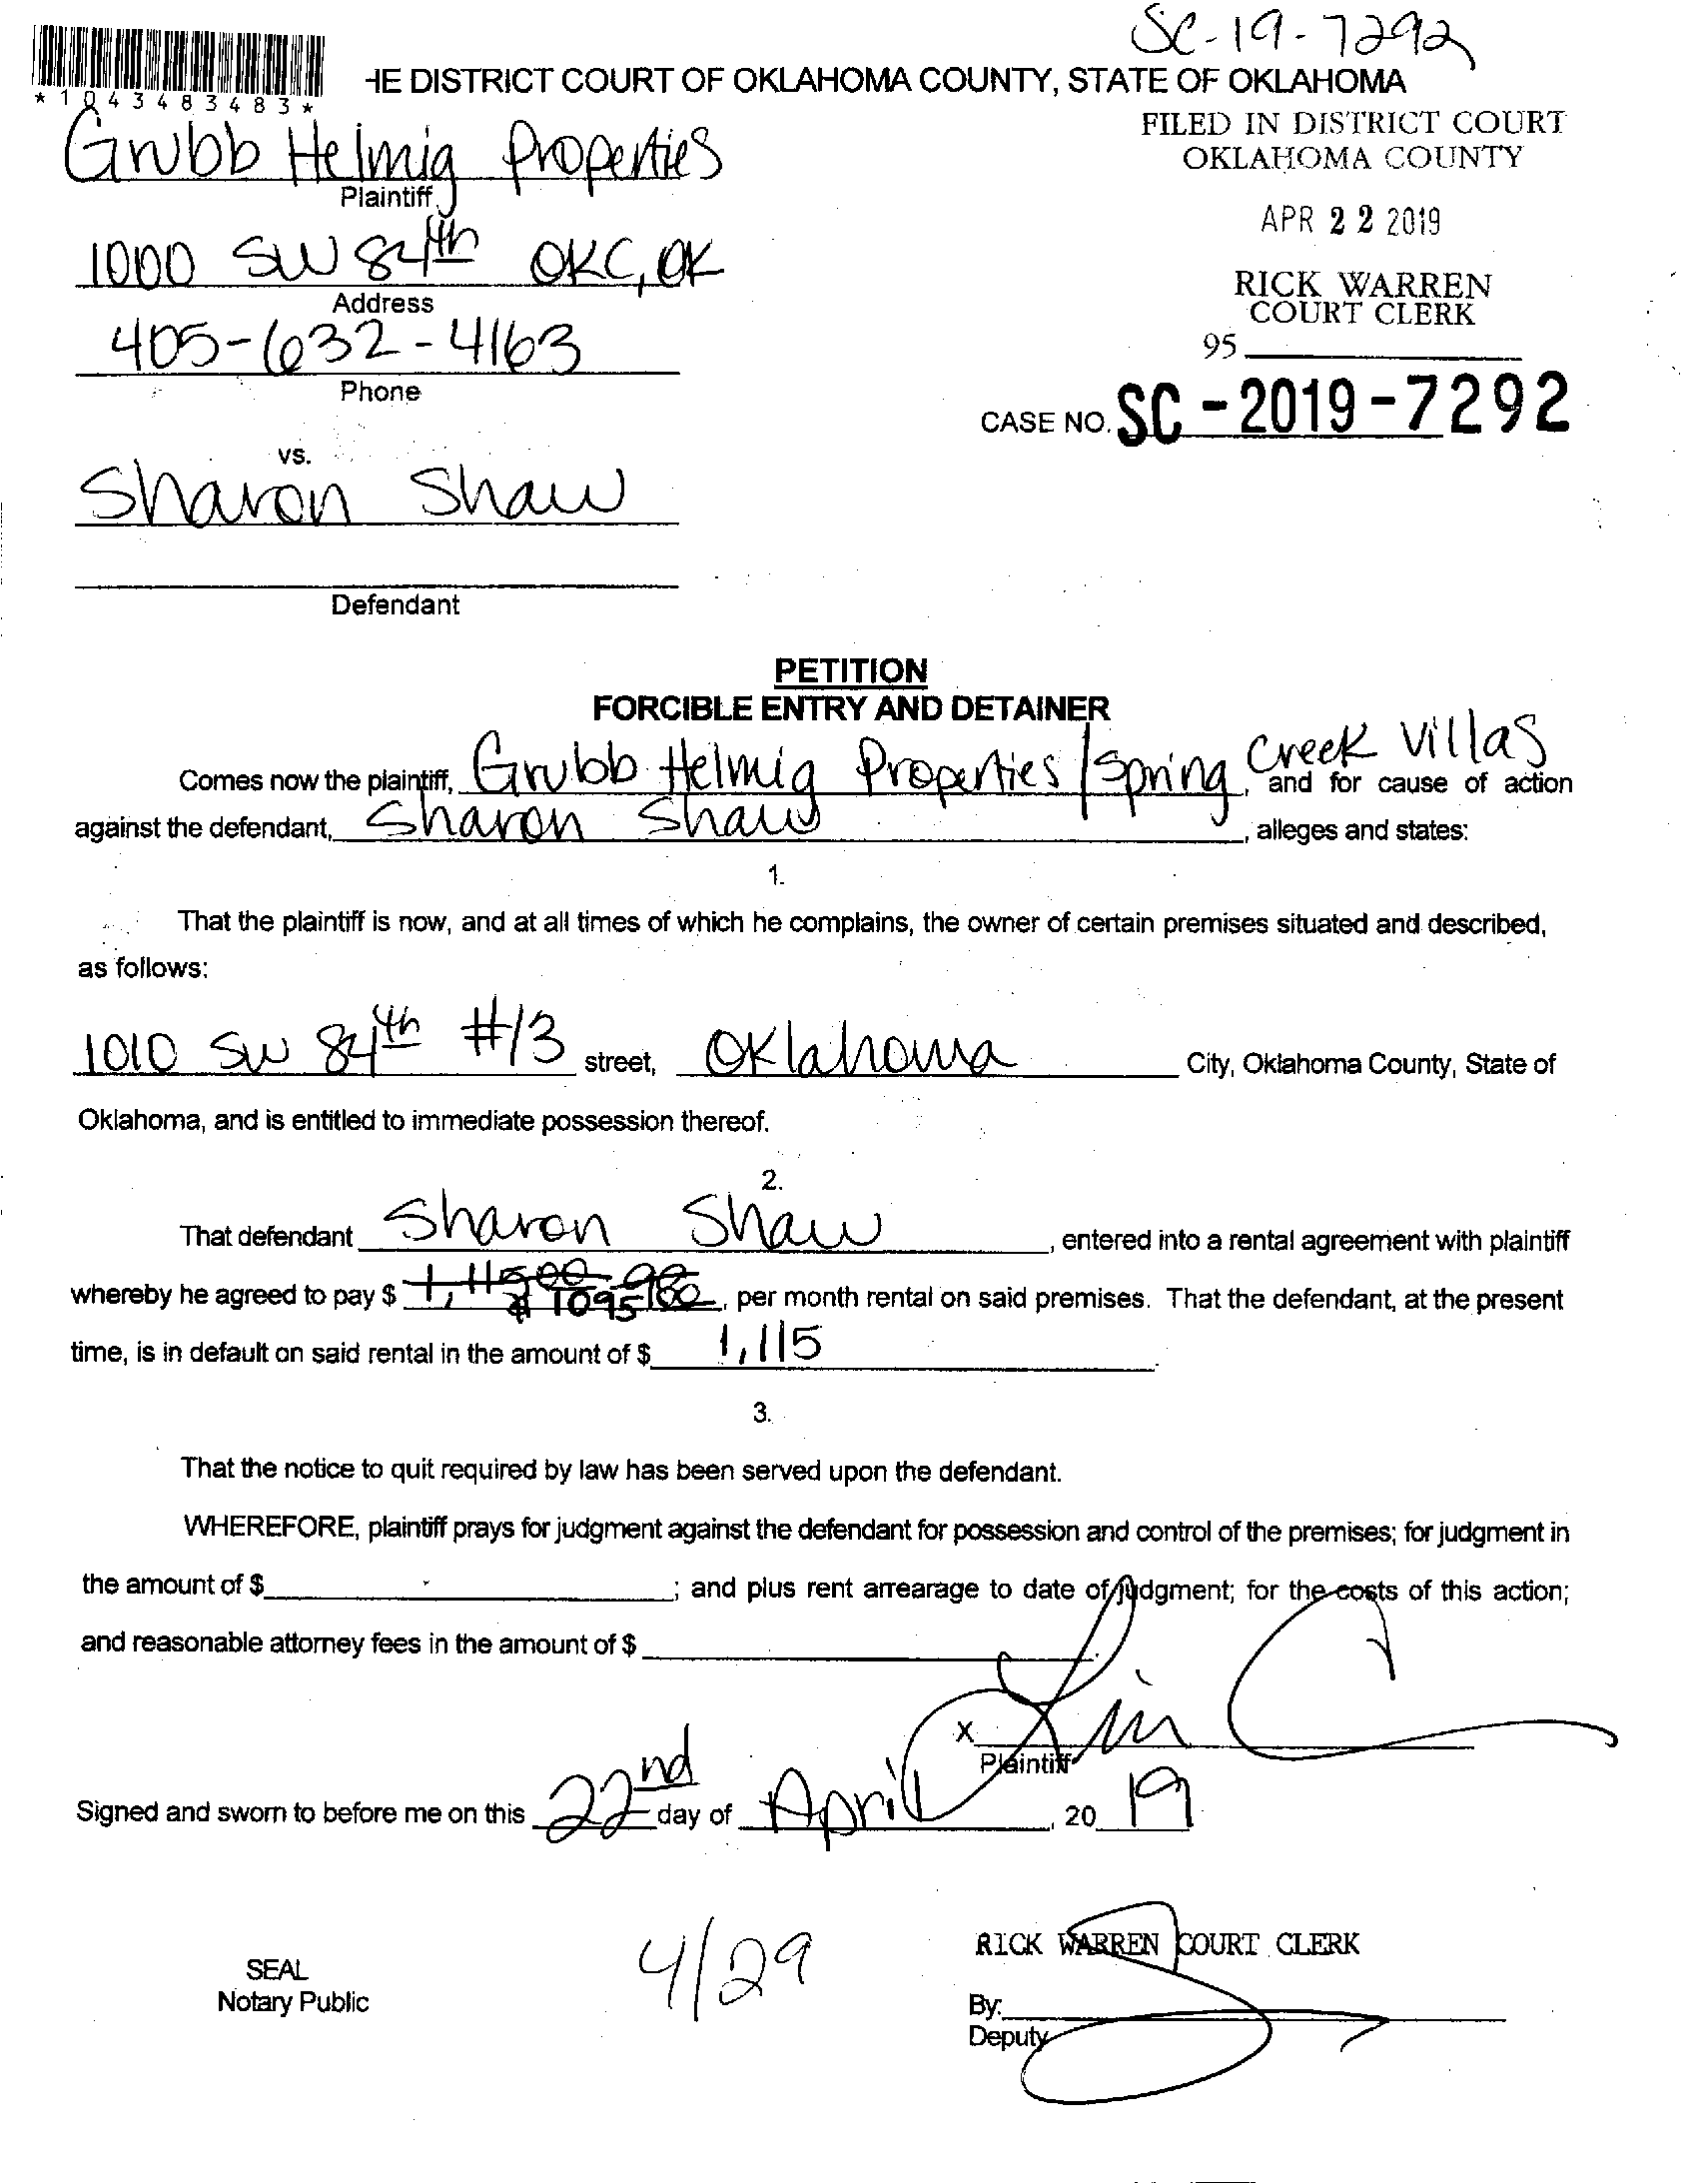 SC-19-7292
* 1 0 4 3 4 8 3 4 8 3 *
HE DISTRICT COURT OF OKLAHOMA COUNTY, STATE OF OKLAHOMA
FILED IN DISTRICT COURT
OKLAHOMA COUNTY
Grubb Helmig Properties
Plaintiff
APR 22 2019
1000 SW 84th OKC, OK
Address
RICK WARREN
COURT CLERK
405-632-4163
95
Phone
CASE NO. SC-2019-7292
vs.
Sharon Shaw
Defendant
PETITION
FORCIBLE ENTRY AND DETAINER
Comes now the plaintiff, Grubb Helmig Properties / Spring Creek Villas, and for cause of action
against the defendant, Sharon Shaw, alleges and states:
1.
That the plaintiff is now, and at all times of which he complains, the owner of certain premises situated and described,
as follows:
1010 SW 84th #13 street, Oklahoma City, Oklahoma County, State of
Oklahoma, and is entitled to immediate possession thereof.
2.
That defendant Sharon Shaw, entered into a rental agreement with plaintiff
whereby he agreed to pay $ , per month rental on said premises. That the defendant, at the present
time, is in default on said rental in the amount of $ 1,115.
3.
That the notice to quit required by law has been served upon the defendant.
WHEREFORE, plaintiff prays for judgment against the defendant for possession and control of the premises; for judgment in
the amount of $ ; and plus rent arrearage to date of judgment; for the costs of this action;
and reasonable attorney fees in the amount of $ .
X
Plaintiff
Signed and sworn to before me on this 22nd day of April, 20 19
SEAL
Notary Public
4/29
RICK WARREN COURT CLERK
By:
Deputy